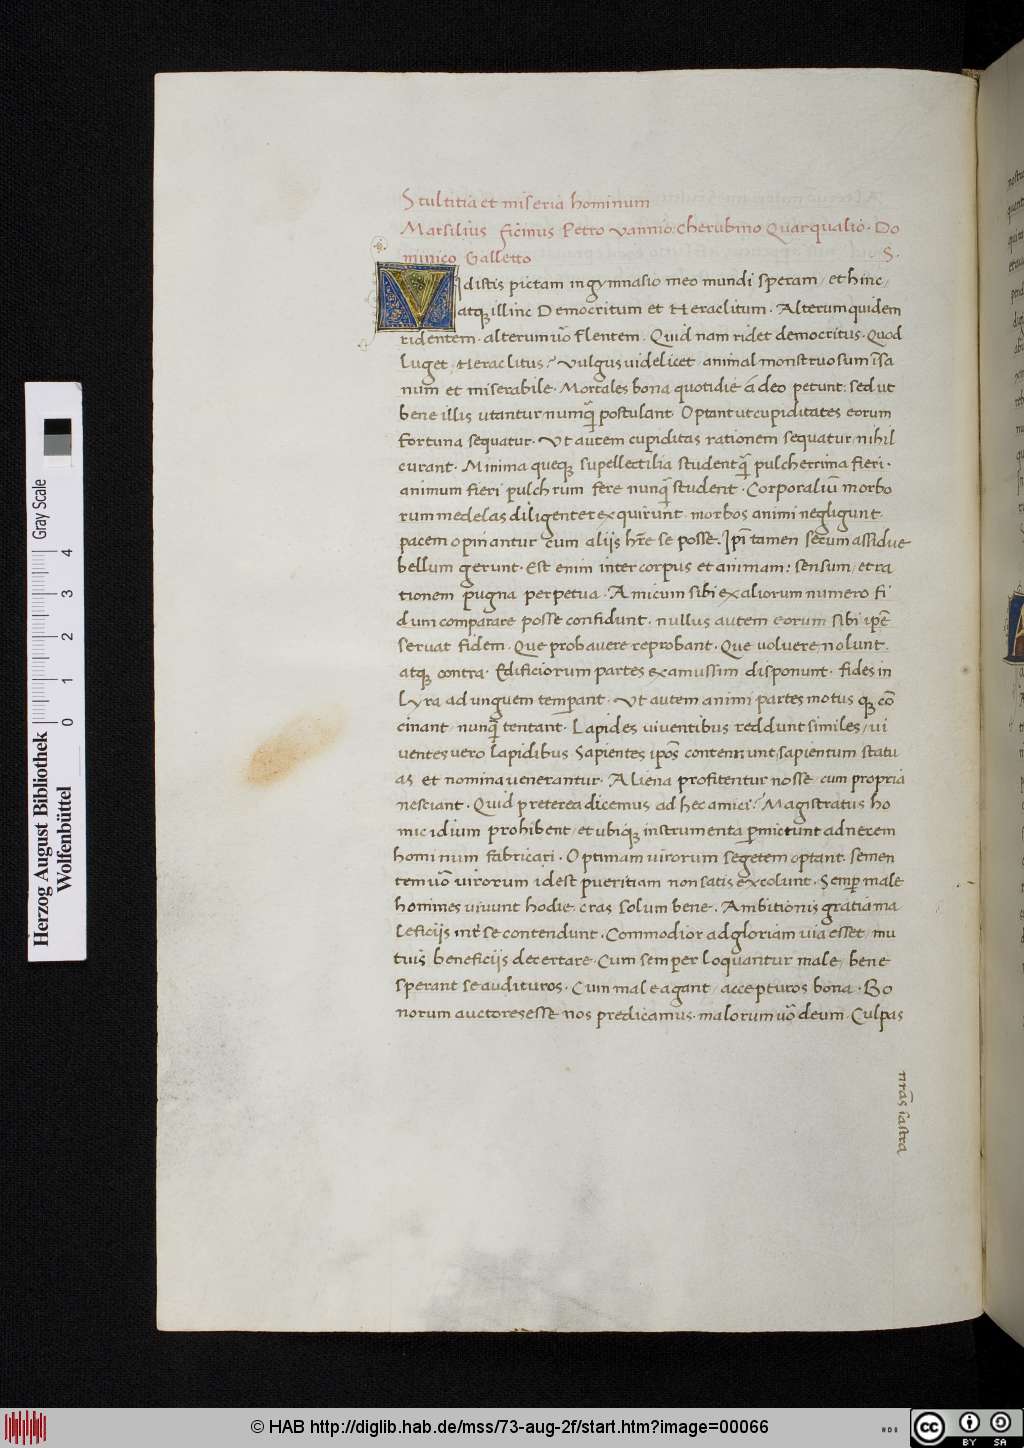 Stultitia et miseria hominum
Marsilius ficinus Petro vannio: cherubino Quarqualio. Do
minico Galletto S.
Vidistis pictam in gymnasio meo mundi speram, et hinc,
atqꝫ illinc Democritum et Heraclitum. Alterum quidem
ridentem. alterum uo᷃ flentem. Quid nam ridet democritus. Quod
luget Heraclitus? Vulgus uidelicet animal monstruosum ı᷃sa
num et miserabile. Mortales bona quotidie á deo petunt: sed ut
bene illis utantur numq᷃ postulant. Optant ut cupiditates eorum
fortuna sequatur. Ut autem cupiditas rationem sequatur, nihil
curant. Minima queqꝫ supellectilia student q᷃ pulcherrima fieri.
animum fieri pulchrum fere nunq᷃ student. Corporaliu᷃ morbo
rum medelas diligenter exquirunt. morbos animi negligunt.
pacem opinantur cum aliis hr̄e se posse. Ipı᷃ tamen secum assidue
bellum gerunt. Est enim inter corpus et animam: sensum, et ra
tionem pugna perpetua. Amicum sibi ex aliorum numero fi
dum comparare posse confidunt. nullus autem eorum sibi ipē
seruat fidem. Que probauere reprobant. Que voluere nolunt.
atqꝫ contra. Edificiorum partes examussim disponunt. fides in
Lyra ad unguem temꝑant. Ut autem animi partes motus qꝫ co᷃
cinant. nunq᷃ tentant. Lapides viventibus reddunt similes, vi
ventes vero lapidibus. Sapientes ipo᷃s contemnunt, sapientum statu
as et nomina venerantur. Aliena profitentur nosse cum propria
nesciant. Quid preterea dicemus ad hec amici? Magistratus ho
micidium prohibent, et ubiqꝫ instrumenta ꝑmictunt ad necem
hominum fabricari. Optimam uirorum segetem optant. semen
tem uo᷃ virorum idest pueritiam non satis excolunt. Semꝑ male
homines uiuunt hodie, cras solum bene. Ambitionis gratia ma
leficiis int̄ se contendunt. Commodior ad gloriam uia esset, mu
tuis beneficiis decertare. Cum semper loquantur male, bene
sperant se audituros. Cum male agant, accepturos bona. Bo
norum auctores esse nos predicamus. malorum uo᷃ deum. Culpas
nrās i᷃ astra
Herzog August Bibliothek
Wolfenbüttel
0 1 2 3 4
Gray Scale
© HAB http://diglib.hab.de/mss/73-aug-2f/start.htm?image=00066
cc BY SA